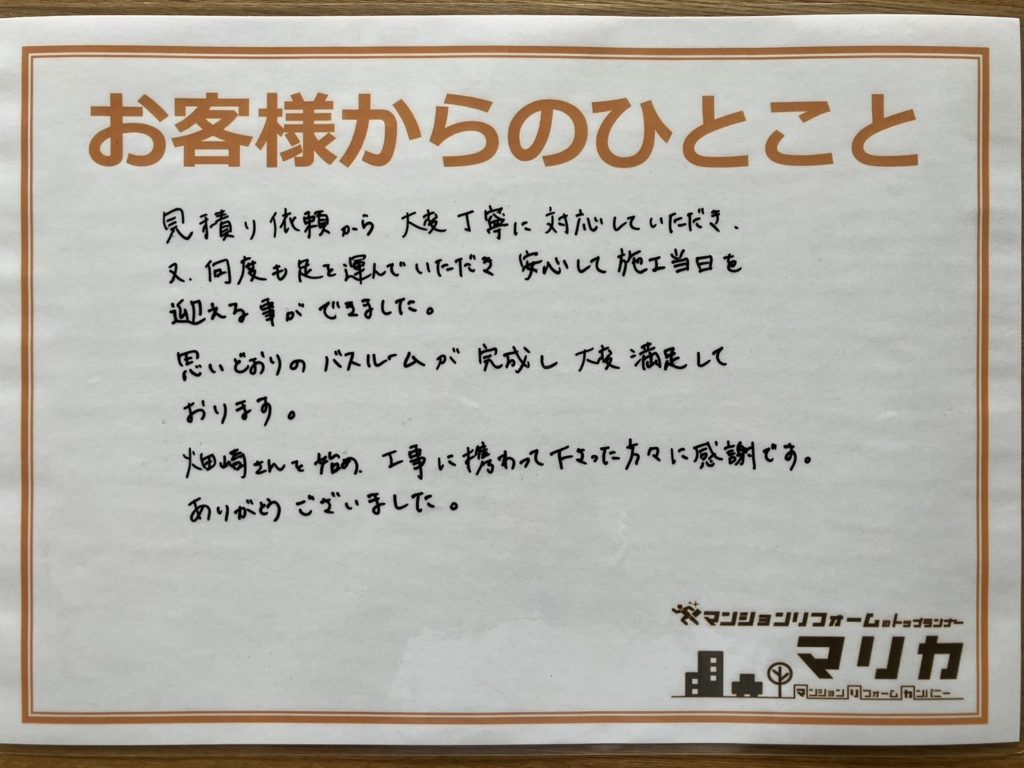 お客様からのひとこと
見積り依頼から 大変丁寧に対応していただき、
又、何度も足を運んでいただき 安心して施工当日を
迎える事ができました。
思いどおりのバスルームが完成し 大変満足して
おります。
畑崎さんを始め、工事に携わって下さった方々に感謝です。
ありがとうございました。
マンションリフォームのトップランナー
マリカ
マンションリフォームカンパニー